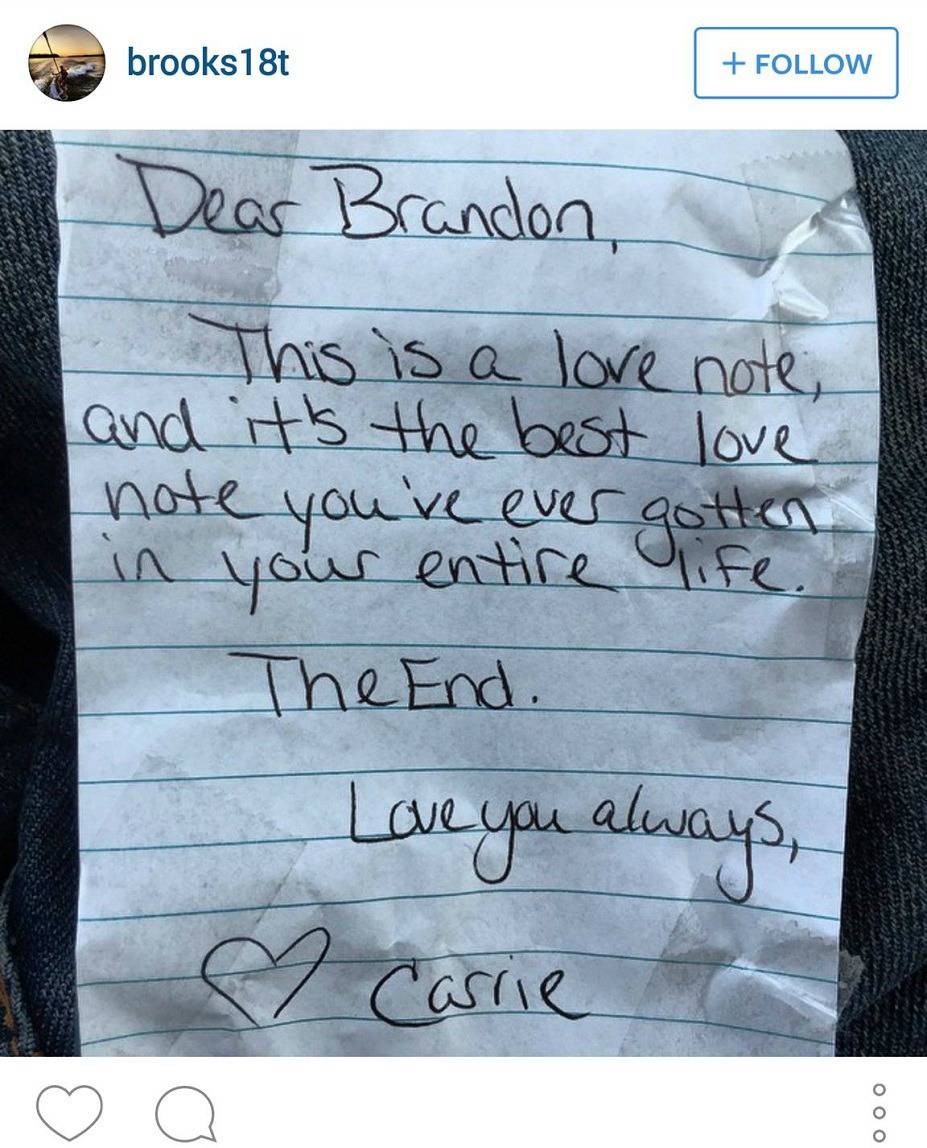 brooks18t
+ FOLLOW
Dear Brandon,
This is a love note,
and it's the best love
note you've ever gotten
in your entire life.
The End.
Love you always,
♡ Carrie